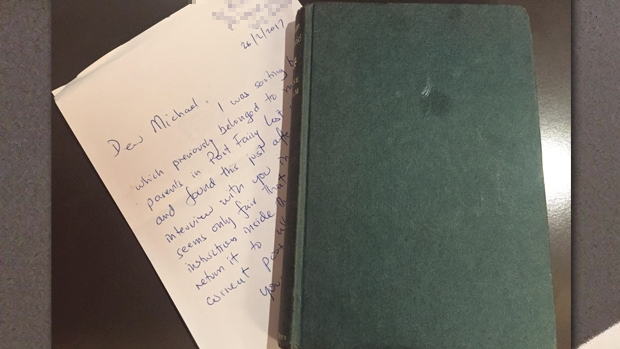 26/2/2017
Dear Michael,
I was sorting
which previously belonged to
parents in Port Fairy last
and found this just after
interview with you
seems only fair that
instructions inside
return it to
correct
you